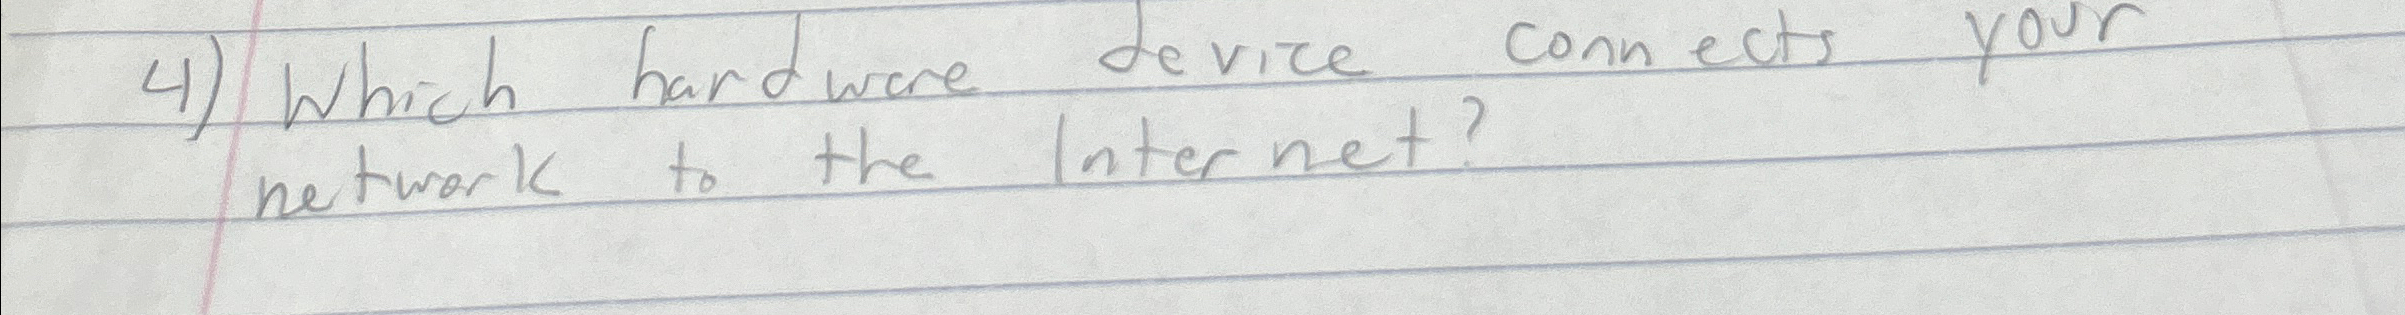 4) Which hardware device connects your
network to the Internet?